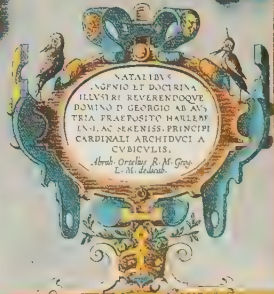 NATALIBVS
INGENIO ET DOCTRINA
ILLVSTRI REVERENDOQVE
DOMINO D. GEORGIO AB AVS,,
TRIA PRAEPOSITO HARLEBE
ENSI, AC SERENISS. PRINCIPI
CARDINALI ARCHIDVCI A
CVBICVLIS,
Abrah. Ortelius R. M. Geog.
L. M. dedicab.